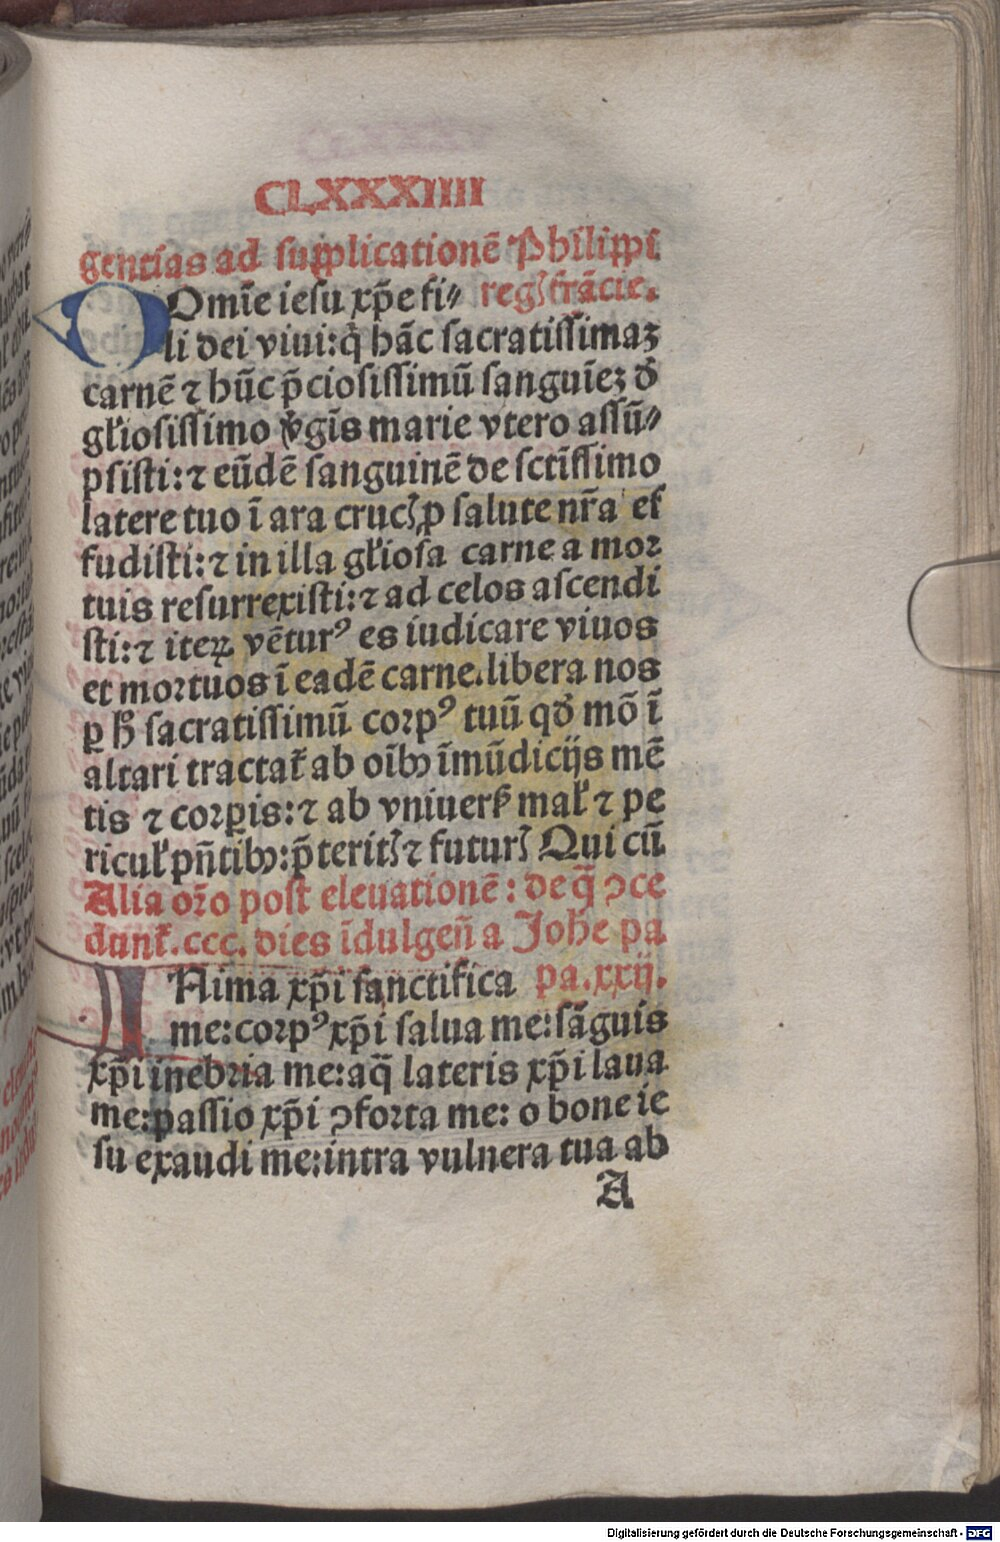 CLXXXIIII
gentias ad supplicationē Philippi
Domīe iesu xp̄e fi⸗ regꝭ frācie.
li dei viui: q̇ hāc sacratissimaꝫ
carnē ⁊ hūc p̄ciosissimū sanguīeꝫ đ
gl'iosissimo v̾gīs marie vtero assū⸗
psisti: ⁊ eūdē sanguinē de sctīssimo
latere tuo ī ara crucꝭ ꝓ salute nr̄a ef
fudisti: ⁊ in illa gl'iosa carne a mor
tuis resurrexisti: ⁊ ad celos ascendi
sti: ⁊ iteꝝ vētur⁹ es iudicare viuos
et mortuos ī eadē carne. libera nos
ꝑ ħ sacratissimū corp⁹ tuū qđ mō ī
altari tractat̄ ab oībꝫ īmūdicijs mē
tis ⁊ corꝑis: ⁊ ab vniuers̄ mal' ⁊ pe
ricul' pn̄tibꝫ: p̄teritꝭ ⁊ futurꝭ Qui cū
Alia or̄o post eleuationē: de q̄ ꝯce
dunt̄. ccc. dies īdulgeñ a Johe pa
ANima xp̄i sanctifica pa. xxij.
me: corp⁹ xp̄i salua me: sāguis
xp̄i inebria me: aq̄ lateris xp̄i laua
me: passio xp̄i ꝯforta me: o bone ie
su exaudi me: intra vulnera tua ab
A
Digitalisierung gefördert durch die Deutsche Forschungsgemeinschaft - DFG